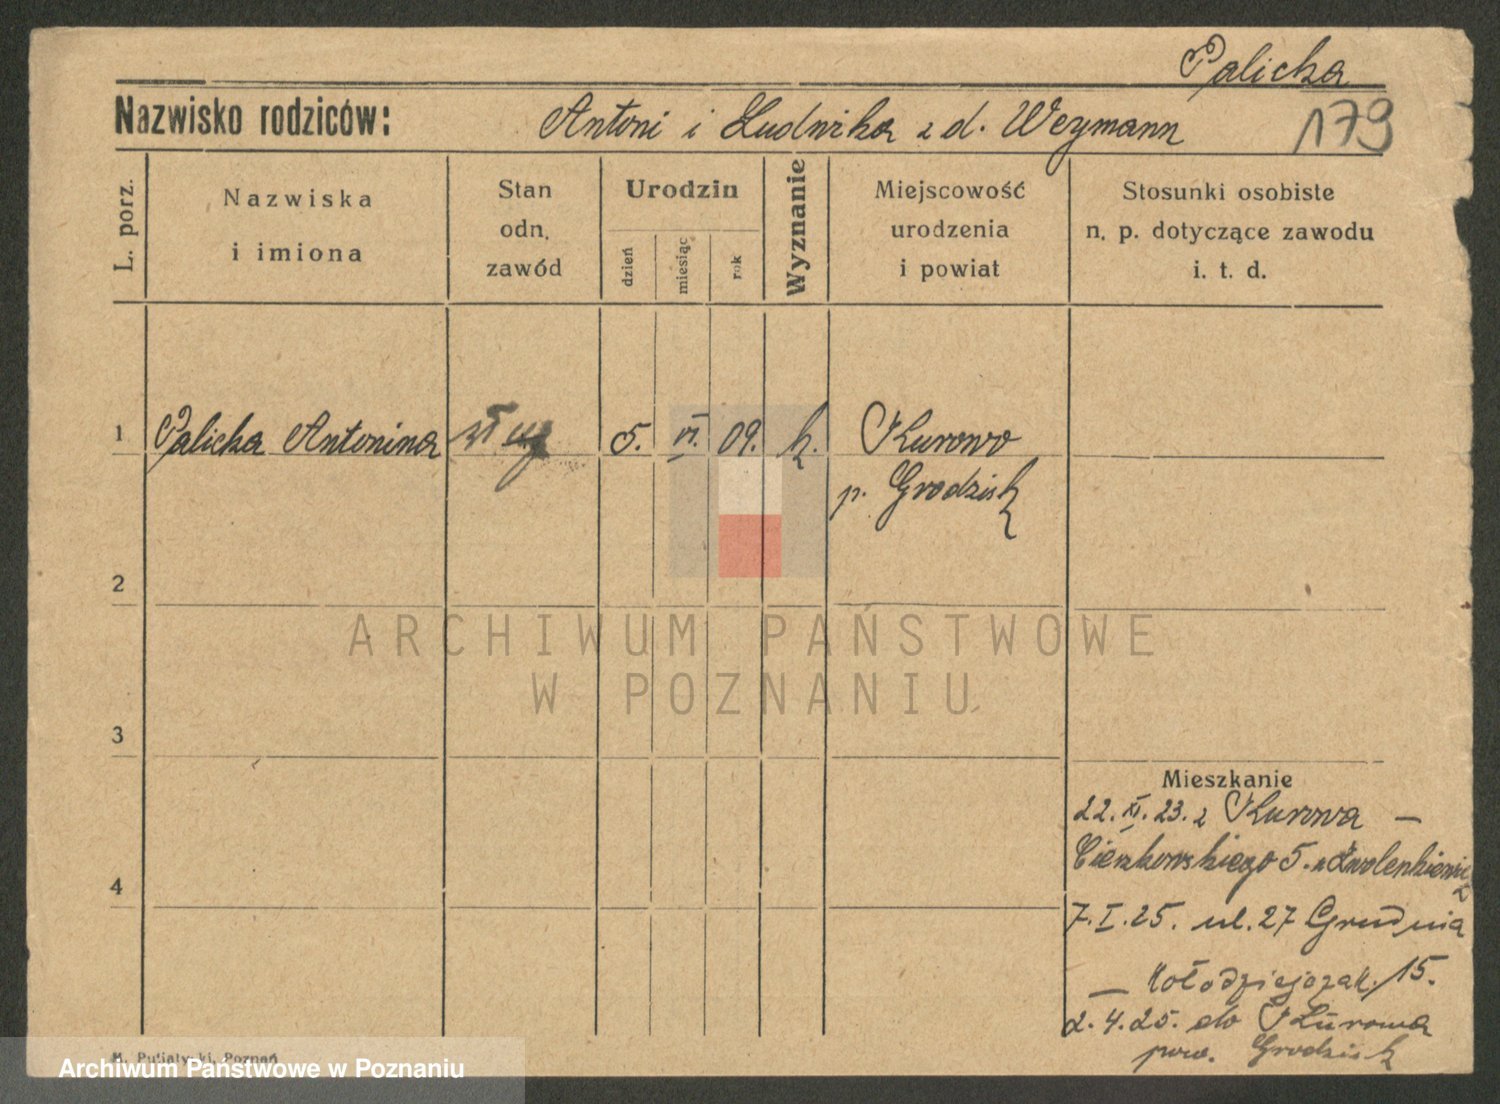 Palicka
Nazwisko rodziców: Antoni i Ludwika z d. Weymann 179
L. porz.
Nazwiska
i imiona
Stan
odn.
zawód
Urodzin
dzień
miesiąc
rok
Wyznanie
Miejscowość
urodzenia
i powiat
Stosunki osobiste
n. p. dotyczące zawodu
i. t. d.
1 Palicka Antonina 5. VI. 09. k. Kurowo
p. Grodzisk
2
ARCHIWUM PAŃSTWOWE
W POZNANIU
3
Mieszkanie
22. XI. 23. z Kurowa —
Cieszkowskiego 5.
4
7. I. 25. ul. 27 Grudnia
— Kołodziejczak 15.
2. 4. 25. do Kurowa
pow. Grodzisk
Poznań
Archiwum Państwowe w Poznaniu